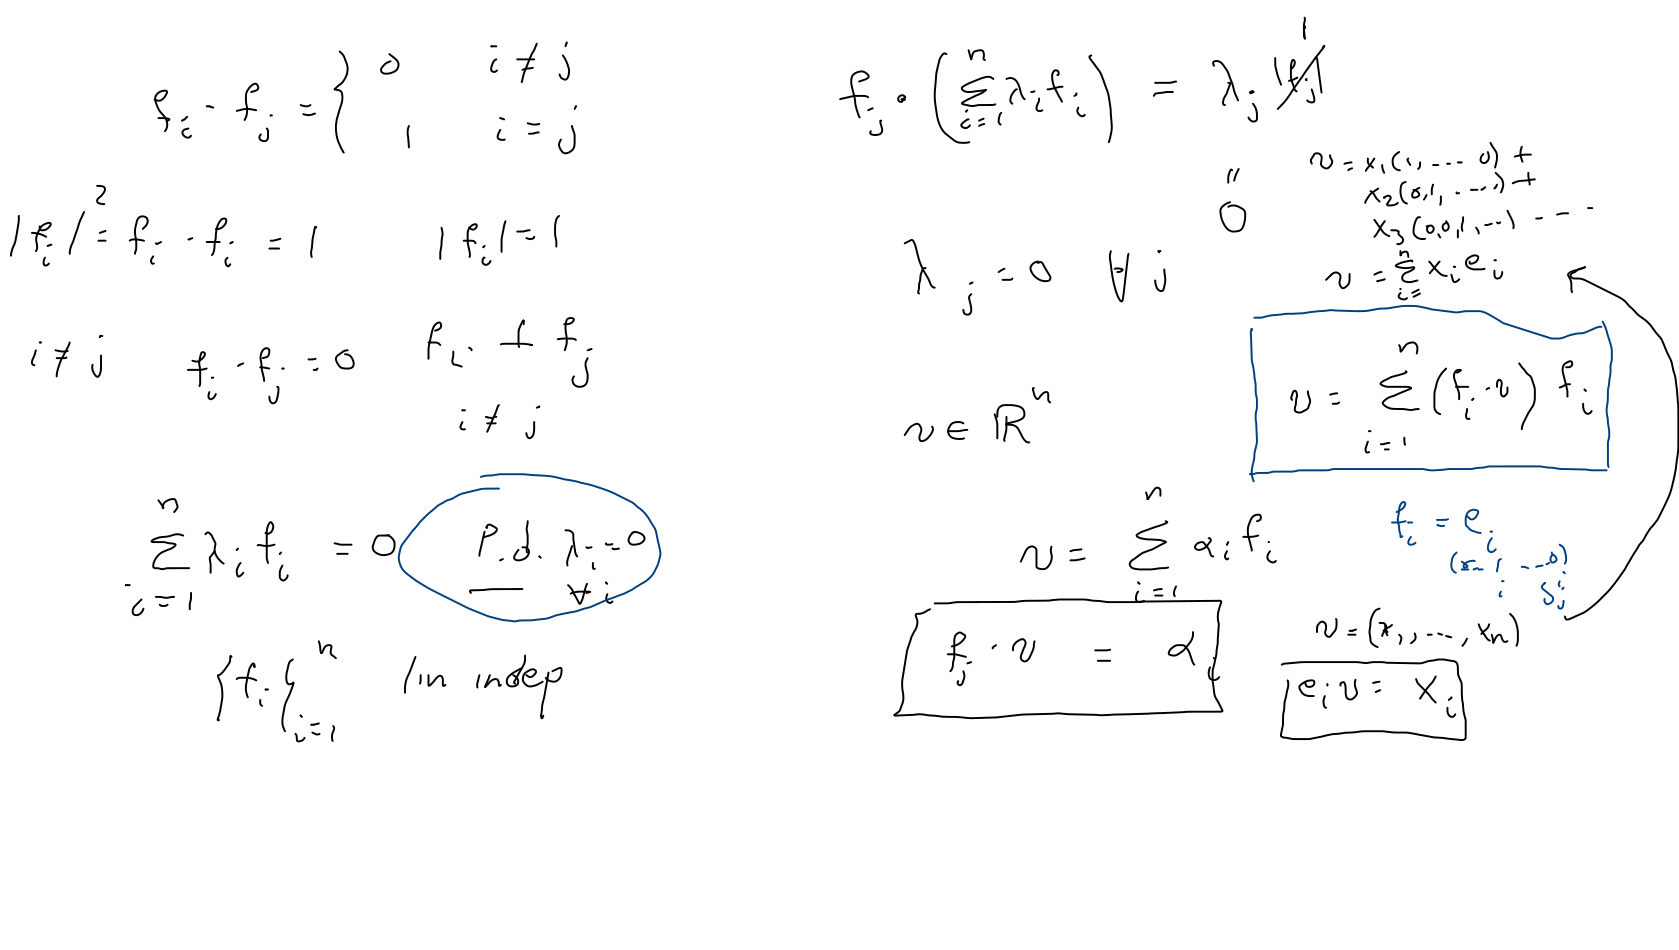 f_i · f_j = { 0   i ≠ j
1   i = j
|f_i|² = f_i · f_i = 1   |f_i| = 1
i ≠ j   f_i · f_j = 0   f_i ⊥ f_j
i ≠ j
∑_{i=1}^{n} λ_i f_i = 0   P.d. λ_i = 0
∀ i
{f_i}_{i=1}^{n}   lin indep
f_j · (∑_{i=1}^{n} λ_i f_i) = λ_j |f_j|   1
"
0
λ_j = 0   ∀ j
v = x_1(1, ... 0) +
x_2(0,1, ...) +
x_3(0,0,1,...) ....
v = ∑_{i=}^{n} x_i e_i
v = ∑_{i=1}^{n} (f_i · v) f_i
v ∈ ℝ^n
v = ∑_{i=1}^{n} α_i f_i
f_j · v = α_j
f_i = e_i
i
v = (x_1, ..., x_n)
e_i v = x_i